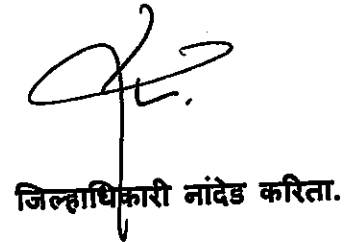 जिल्हाधिकारी नांदेड करिता.